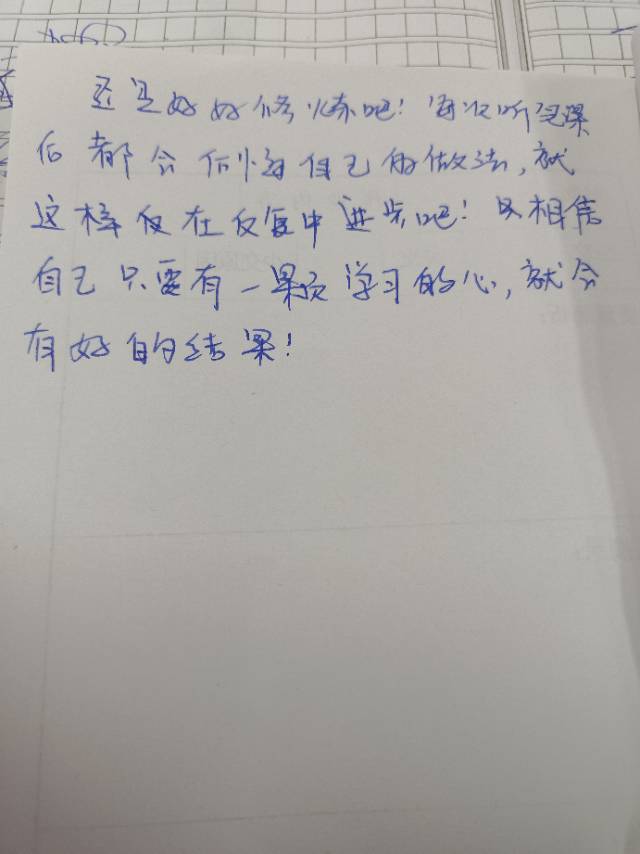 还是好好修炼吧！每次听完课
后都会后悔自己的做法，就
这样反在反复中进步吧！只相信
自己只要有一颗学习的心，就会
有好的结果！